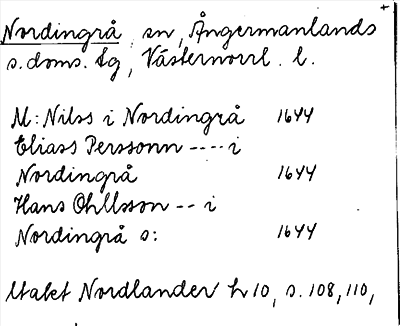 Nordingrå sn, Ångermanlands
s. doms. tg, Västernorrl. l.
M: Nilss i Nordingrå 1644
Eliass Perssonn ---- i
Nordingrå 1644
Hans Ohllsson -- i
Nordingrå s: 1644
Utakt Nordlander h 10, s. 108, 110,